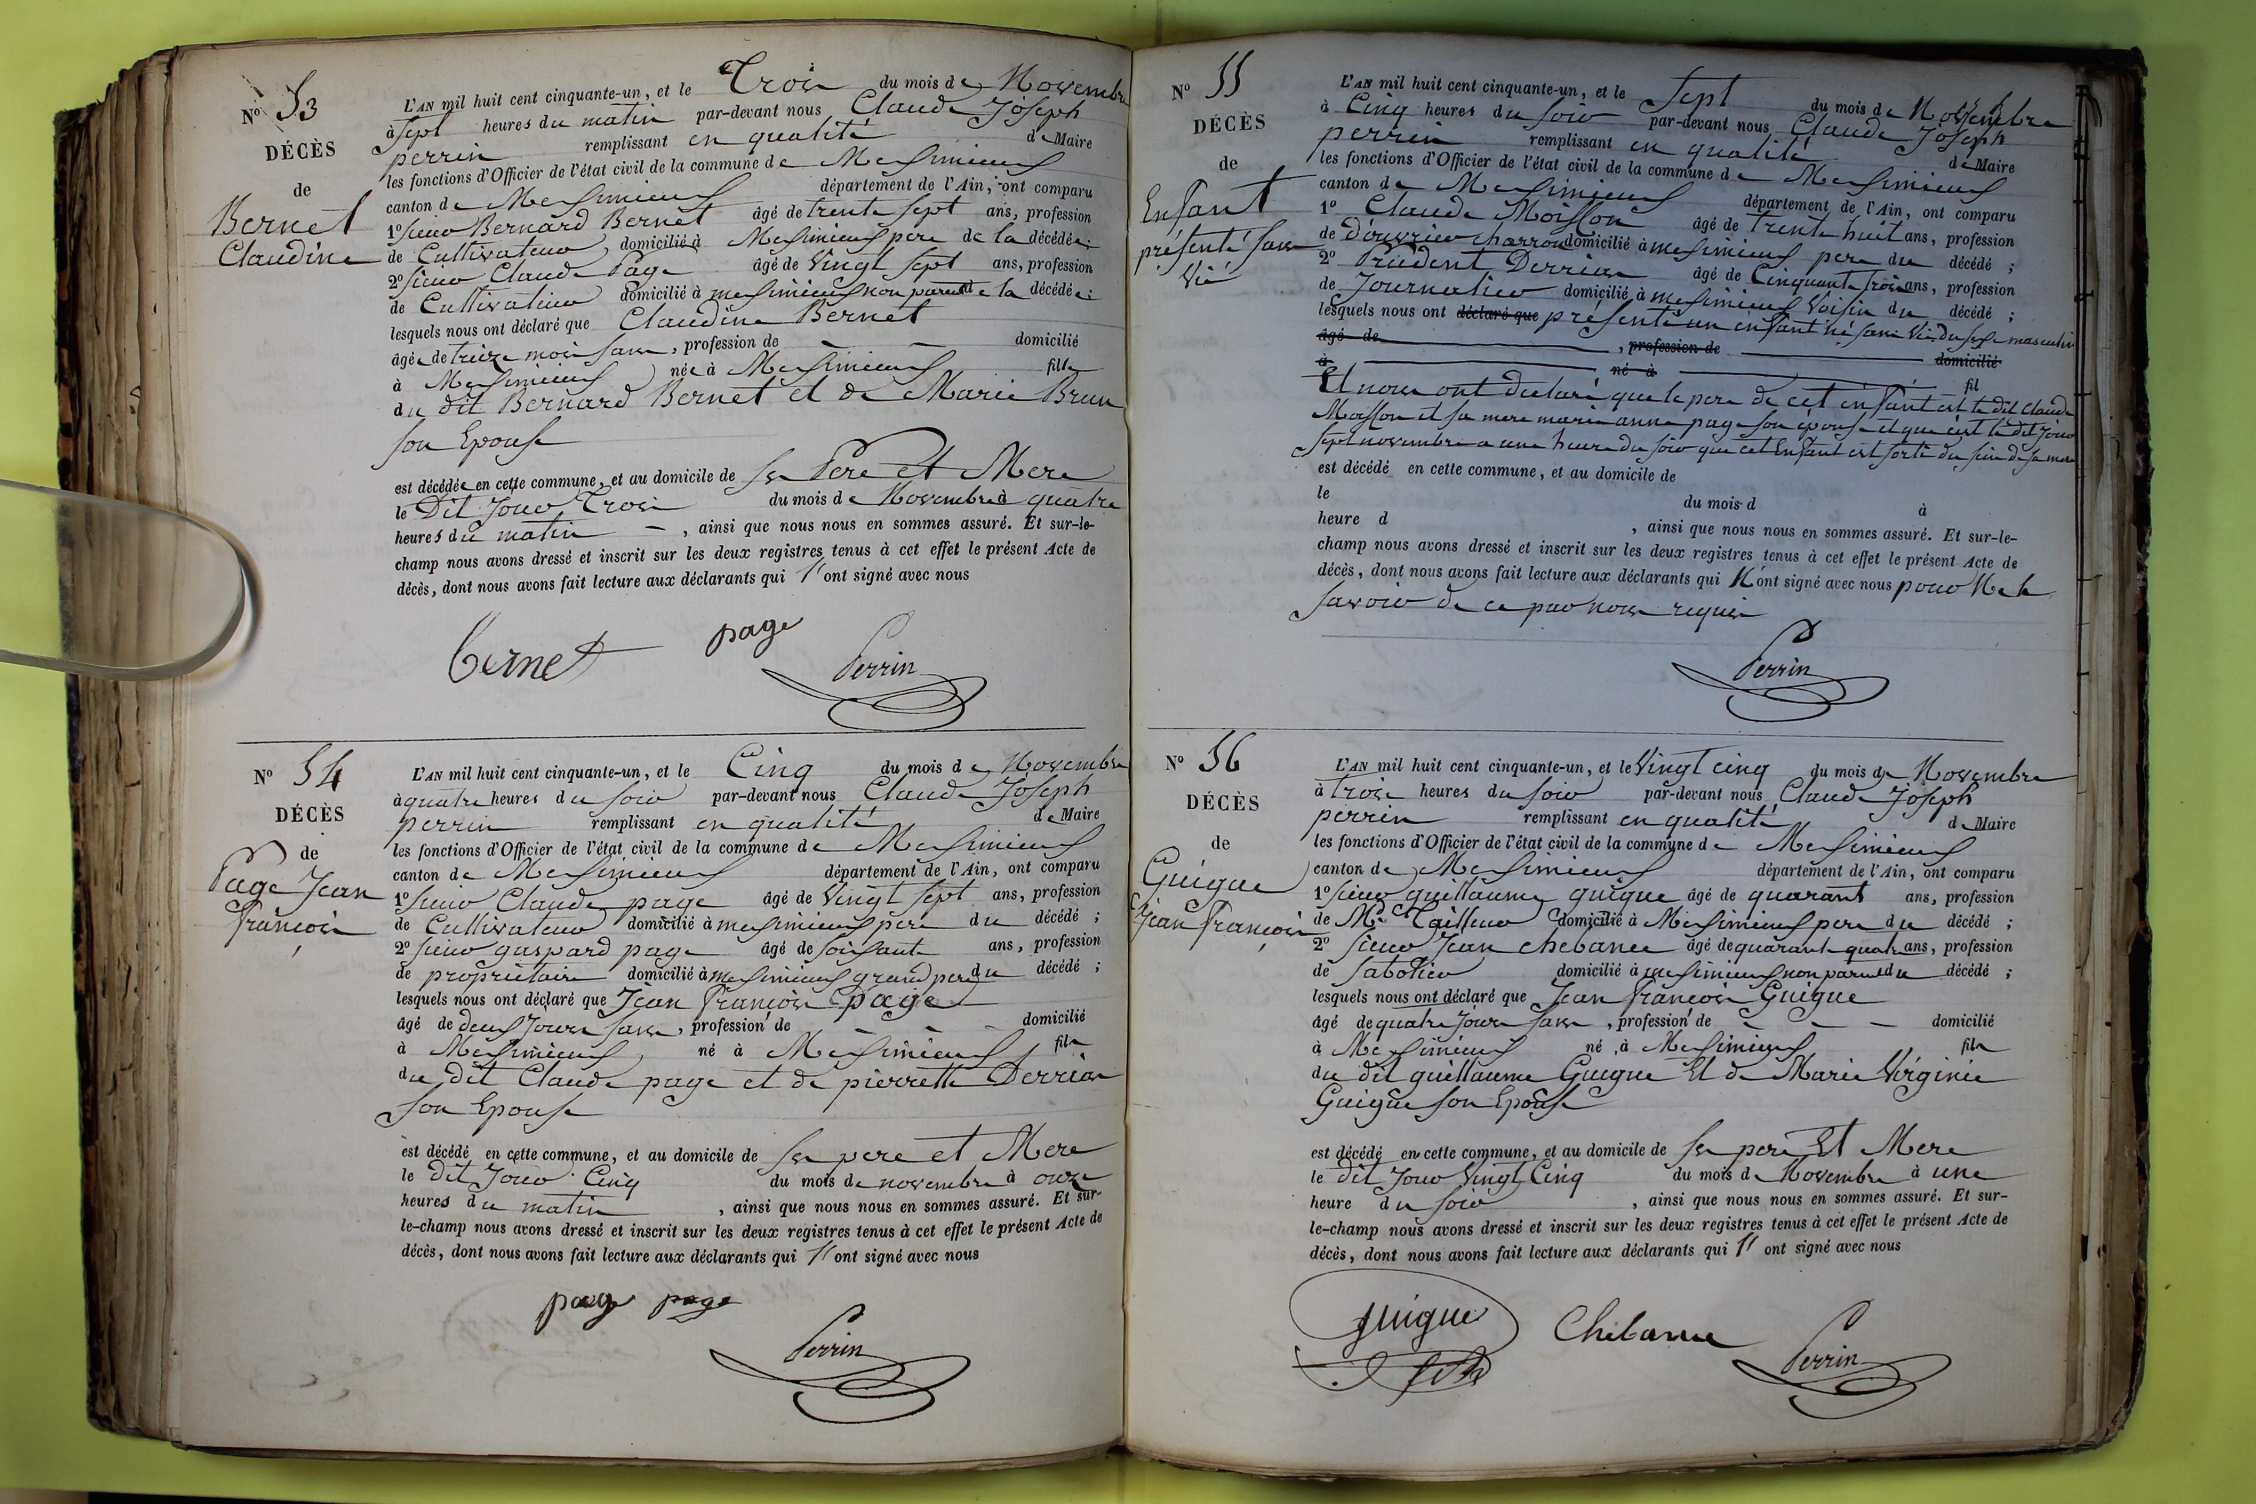 N° 53
DÉCÈS
de
Bernet
Claudine
L'AN mil huit cent cinquante-un, et le Trois du mois de Novembre
à sept heures du matin par-devant nous Claude Joseph
perrin remplissant en qualité de Maire
les fonctions d'Officier de l'état civil de la commune de Meximieux
canton de Meximieux département de l'Ain, ont comparu
1° sieur Bernard Bernet âgé de trente sept ans, profession
de Cultivateur domicilié à Meximieux pere de la décédée;
2° sieur Claude Page âgé de Vingt sept ans, profession
de Cultivateur domicilié à meximieux non parent de la décédée;
lesquels nous ont déclaré que Claudine Bernet
âgée de treize mois sans, profession de — — domicilié
à Meximieux née à Meximieux fille
du dit Bernard Bernet et de Marie Brun
son Epouse
est décédée en cette commune, et au domicile de ses Pere et Mere
le Dit Jour Trois du mois de Novembre à quatre
heures du matin —, ainsi que nous nous en sommes assuré. Et sur-le-
champ nous avons dressé et inscrit sur les deux registres tenus à cet effet le présent Acte de
décès, dont nous avons fait lecture aux déclarants qui ont signé avec nous
Bernet page
Perrin
N° 54
DÉCÈS
de
Page Jean
françois
L'AN mil huit cent cinquante-un, et le Cinq du mois de Novembre
à quatre heures du soir par-devant nous Claude Joseph
perrin remplissant en qualité de Maire
les fonctions d'Officier de l'état civil de la commune de Meximieux
canton de Meximieux département de l'Ain, ont comparu
1° sieur Claude page âgé de Vingt sept ans, profession
de Cultivateur domicilié à meximieux pere du décédé;
2° sieur gaspard page âgé de soixante ans, profession
de proprietaire domicilié à meximieux grand pere du décédé;
lesquels nous ont déclaré que Jean françois page
âgé de deux Jours sans, profession de — — — domicilié
à Meximieux né à Meximieux fils
du dit Claude page et de pierrette Derrias
son Epouse
est décédé en cette commune, et au domicile de ses pere et Mere
le dit Jour Cinq du mois de novembre à onze
heures du matin, ainsi que nous nous en sommes assuré. Et sur-
le-champ nous avons dressé et inscrit sur les deux registres tenus à cet effet le présent Acte de
décès, dont nous avons fait lecture aux déclarants qui ont signé avec nous
page page
Perrin
N° 55
DÉCÈS
de
Enfant
présenté sans
Vie
L'AN mil huit cent cinquante-un, et le Sept du mois de Novembre
à Cinq heures du soir par-devant nous Claude Joseph
perrin remplissant en qualité de Maire
les fonctions d'Officier de l'état civil de la commune de Meximieux
canton de Meximieux département de l'Ain, ont comparu
1° Claude Moisson âgé de trente huit ans, profession
de d'ouvrier charron domicilié à meximieux pere du décédé;
2° Prudent Derrias âgé de Cinquante trois ans, profession
de Journalier domicilié à meximieux Voisin du décédé;
lesquels nous ont déclaré que présenté un enfant né sans Vie Du sexe masculin
âgé de, profession de domicilié
à né à fil
Et nous ont declaré que le pere de cet enfant est le dit Claude
Moisson et sa mere marie anne page son épouse et que c'est le dit Jour
sept novembre a une heure du soir que cet Enfant est sorti du sein de sa mere
est décédé en cette commune, et au domicile de
le du mois d à
heure d, ainsi que nous nous en sommes assuré. Et sur-le-
champ nous avons dressé et inscrit sur les deux registres tenus à cet effet le présent Acte de
décès, dont nous avons fait lecture aux déclarants qui N'ont signé avec nous pour Ne le
savoir de ce par nous requis
Perrin
N° 56
DÉCÈS
de
Guigue
Jean françois
L'AN mil huit cent cinquante-un, et le Vingt cinq du mois de Novembre
à trois heures du soir par-devant nous Claude Joseph
perrin remplissant en qualité de Maire
les fonctions d'Officier de l'état civil de la commune de Meximieux
canton de Meximieux département de l'Ain, ont comparu
1° sieur guillaume guigue âgé de quarante ans, profession
de Md Tailleur domicilié à Meximieux pere du décédé;
2° sieur Jean chebance âgé de quarante quatre ans, profession
de sabotier domicilié à meximieux non parent du décédé;
lesquels nous ont déclaré que Jean françois Guigue
âgé de quatre Jours sans, profession de — — — domicilié
à Meximieux né à Meximieux fils
du dit guillaume Guigue Et de Marie Virginie
Guigue son Epouse
est décédé en cette commune, et au domicile de ses pere Et Mere
le dit Jour Vingt Cinq du mois de Novembre à une
heure du soir, ainsi que nous nous en sommes assuré. Et sur-
le-champ nous avons dressé et inscrit sur les deux registres tenus à cet effet le présent Acte de
décès, dont nous avons fait lecture aux déclarants qui ont signé avec nous
guigue
Perrin